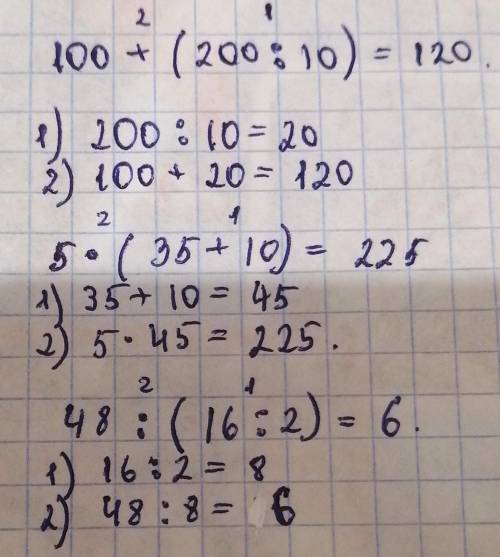 2 1
100 + (200 : 10) = 120.
1) 200 : 10 = 20
2) 100 + 20 = 120
2 1
5 · (35 + 10) = 225
1) 35 + 10 = 45
2) 5 · 45 = 225.
2 1
48 : (16 : 2) = 6.
1) 16 : 2 = 8
2) 48 : 8 = 6